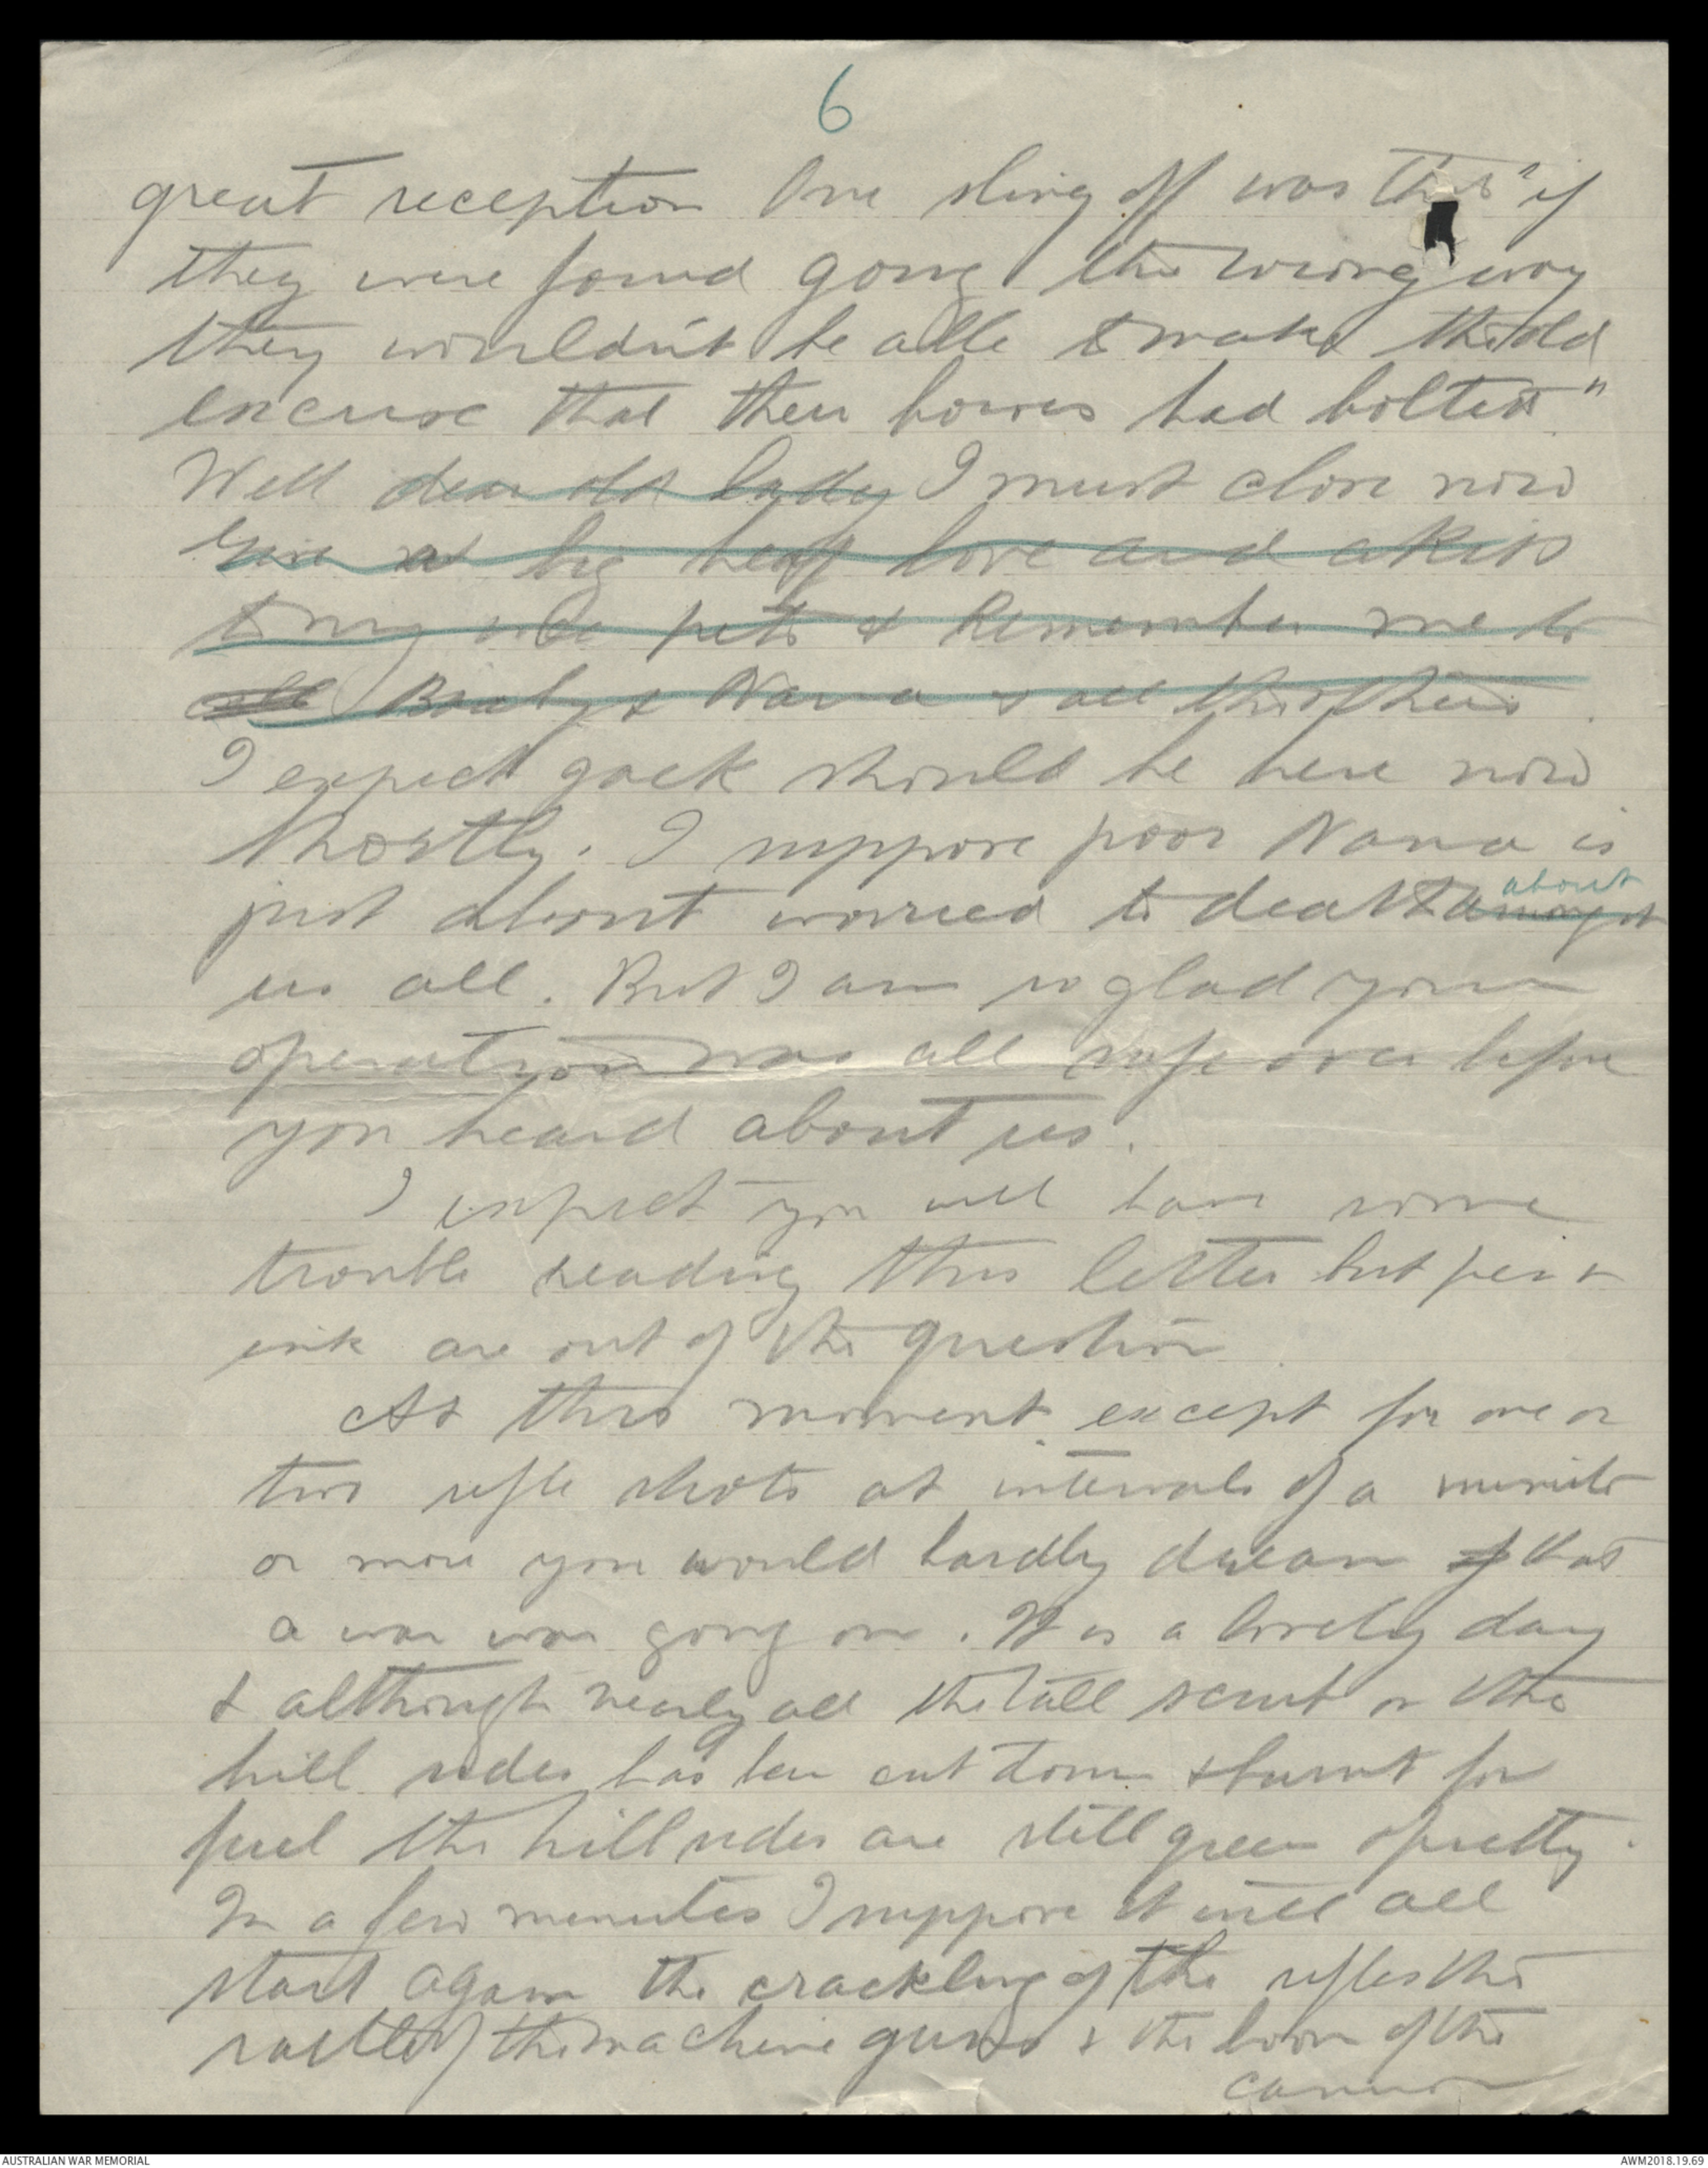 6
great reception One sling off was this "if
they were found going the wrong way
they wouldn't be able to make the old
excuse that their horses had bolted"
Well dear old lady I must close now
Give a big heap love and a kiss
to my wee pets & Remember me to
all Baby & Nana & all the others.
I expect Jack should be here now
shortly. I suppose poor Nana is
just about worried to death amongst about
us all. But I am so glad your
operation was all safe over before
you heard about us.
I expect you will have some
trouble reading this letter but pen &
ink are out of the question
At this moment except for one or
two rifle shots at intervals of a minute
or more you would hardly dream of that
a war was going on. It is a lovely day
& although nearly all the tall scrub on the
hill sides has been cut down & burnt for
fuel the hill sides are still green & pretty.
In a few minutes I suppose it will all
start again the crackling of the rifles the
rattle of the machine guns & the boom of the
cannon
AUSTRALIAN WAR MEMORIAL
AWM2018.19.69